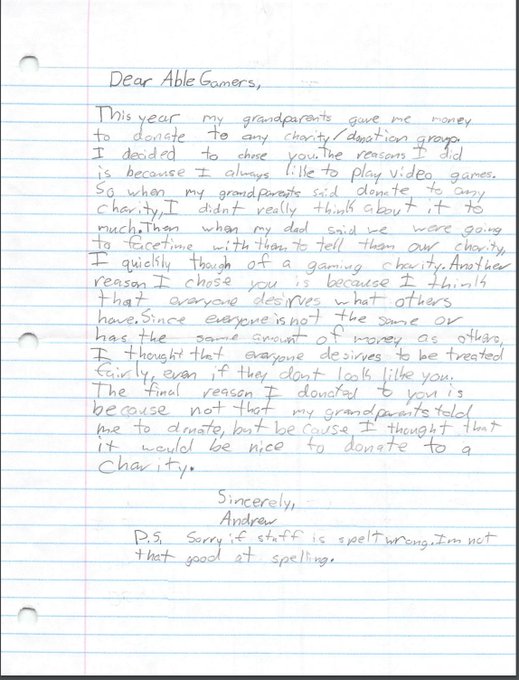 Dear AbleGamers,
This year my grandparents gave me money
to donate to any charity/donation group.
I decided to chose you. The reasons I did
is because I always like to play video games.
So when my grandparents said donate to any
charity, I didnt really think about it to
much. Then when my dad said we were going
to facetime with them to tell them our charity,
I quickly though of a gaming charity. Another
reason I chose you is because I think
that everyone desirves what others
have. Since everyone is not the same or
has the same amount of money as others,
I thought that everyone desirves to be treated
fairly, even if they dont look like you.
The final reason I donated to you is
because not that my grandparents told
me to donate, but because I thought that
it would be nice to donate to a
charity.
Sincerely,
Andrew
P.S. Sorry if stuff is spelt wrong. Im not
that good at spelling.